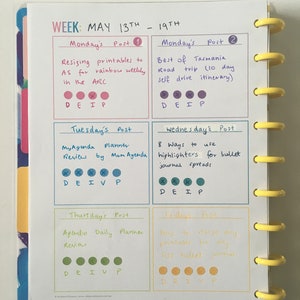 WEEK: MAY 13TH - 19TH
Monday's Post 1
Resizing printables to
A5 for rainbow weekly
in the ARC
D E I P
Monday's Post 2
Best of Tasmania
Road trip (10 day
self drive itinerary)
D E I P
Tuesday's Post
MyAgenda Planner
Review by Mum Agenda
D E I V P
Wednesday's Post
8 Ways to use
highlighters for bullet
journal spreads
D E I V P
Thursday's Post
Agendio Daily Planner
Review
D E I V P
Friday's Post
D E I V P